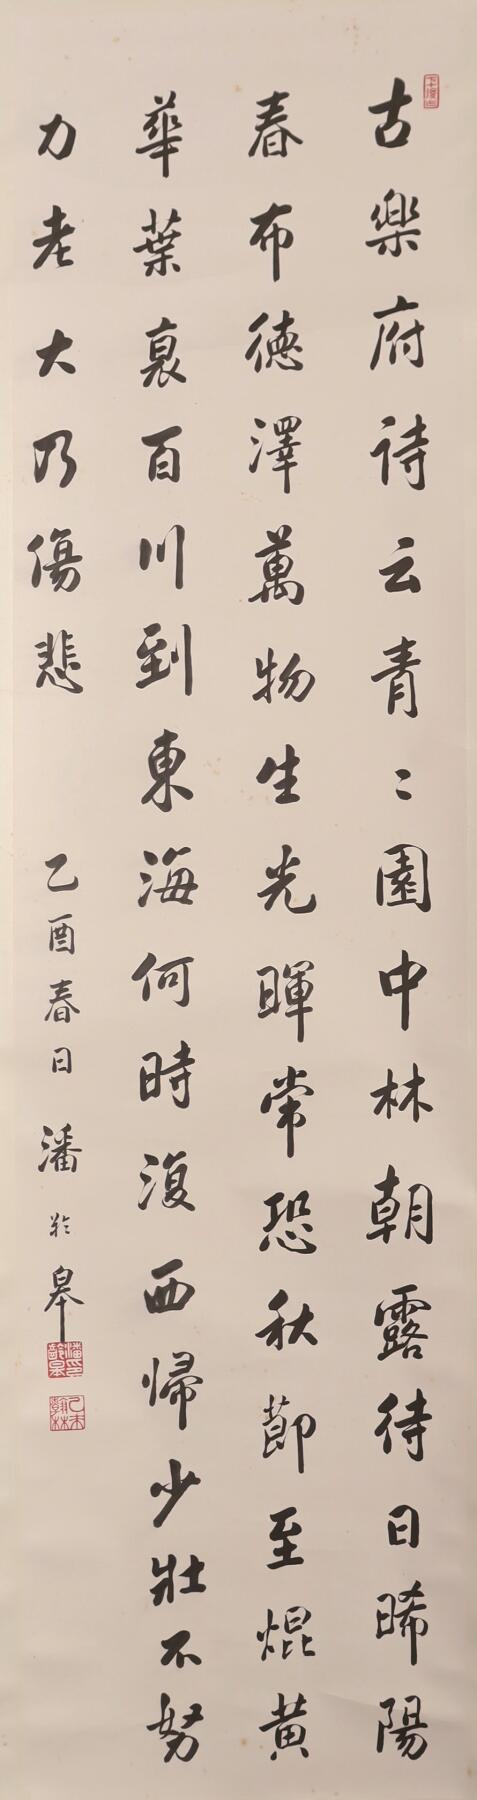 古樂府詩云青〻園中林朝露待日晞陽
春布德澤萬物生光暉常恐秋節至焜黃
華葉衰百川到東海何時復西歸少壯不努
力老大乃傷悲
乙酉春日潘齡皋
潘印齡皋
乙未翰林